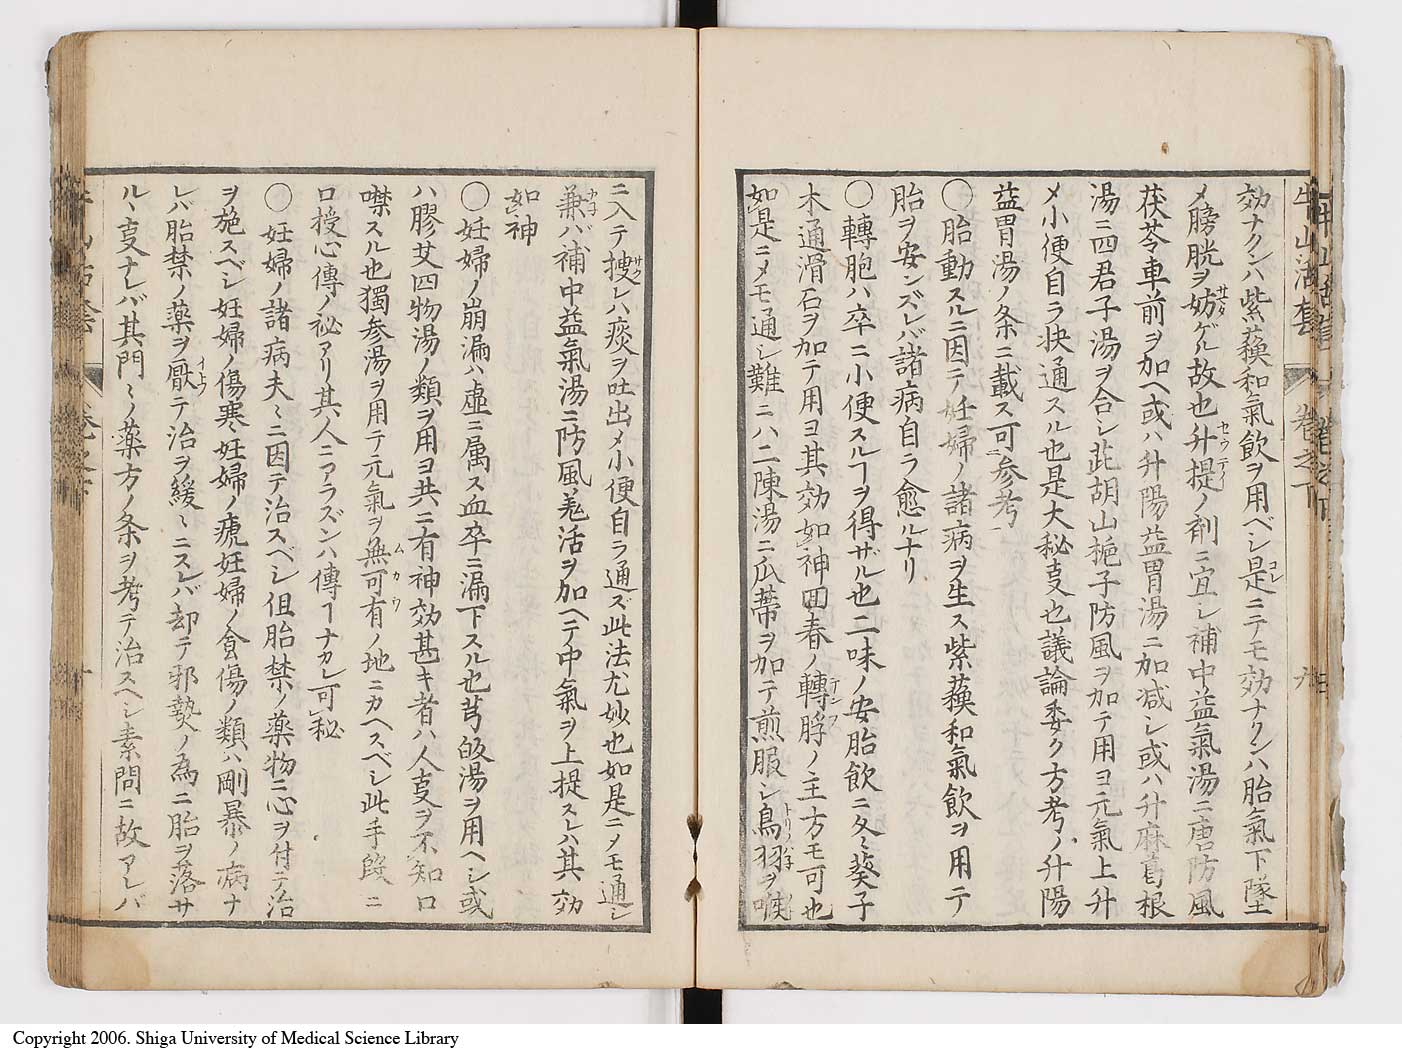 牛山活套 卷之下 九
効ナクンハ紫蘓和氣飲ヲ用ベシ是ニテモ効ナクンハ胎氣下墜
〆膀胱ヲ妨ゲル故也升提ノ剤ニ宜シ補中益氣湯ニ唐防風
茯苓車前ヲ加ヘ或ハ升陽益胃湯ニ加减シ或ハ升麻葛根
湯ニ四君子湯ヲ合シ茈胡山梔子防風ヲ加テ用ヨ元氣上升
〆小便自ラ快通スル也是大秘叓也議論委ク方考ノ升陽
益胃湯ノ条ニ載ス可参考
〇胎動スルニ因テ妊婦ノ諸病ヲ生ス紫蘓和氣飲ヲ用テ
胎ヲ安ンズレバ諸病自ラ愈ルナリ
〇轉胞ハ卒ニ小便スルヿヲ得ザル也二味ノ安胎飲ニ冬〻葵子
木通滑石ヲ加テ用ヨ其効如神四春ノ轉脬ノ主方モ可也
如是ニ〆モ通シ難ニハ二陳湯ニ瓜蒂ヲ加テ煎服シ鳥羽ヲ喉
ニ入テ搜レハ痰ヲ吐出〆小便自ラ通ズ此法尤妙也如是ニ〆モ通シ
兼バ補中益氣湯ニ防風羗活ヲ加ヘテ中氣ヲ上提スレハ其効
如神
〇妊婦ノ崩漏ハ虚ニ属ス血卒ニ漏下スル也芎皈湯ヲ用ヘシ或
ハ膠艾四物湯ノ類ヲ用ヨ共ニ有神効甚キ者ハ人叓ヲ不知口
噤スル也獨参湯ヲ用テ元氣ヲ無可有ノ地ニカヘスベシ此手段ニ
口授心傳ノ秘アリ其人ニアラズンハ傳ヿナカレ可秘
〇妊婦ノ諸病夫〻ニ因テ治スベシ但胎禁ノ薬物ニ心ヲ付テ治
ヲ施スベシ妊婦ノ傷寒妊婦ノ瘧妊婦ノ食傷ノ類ハ剛暴ノ病ナ
レバ胎禁ノ薬ヲ厭テ治ヲ緩〻ニスレバ却テ邪𤍠ノ為ニ胎ヲ落サ
ルヽ叓ナレバ其門〻ノ薬方ノ条ヲ考テ治スヘシ素問ニ故アレバ